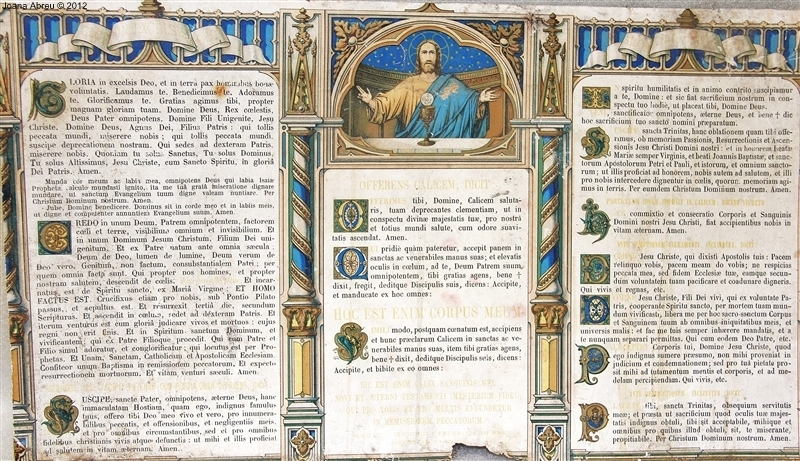 Joana Abreu © 2012
GLORIA in excelsis Deo, et in terra pax hominibus bonæ
voluntatis. Laudamus te. Benedicimus te. Adoramus
te. Glorificamus te. Gratias agimus tibi, propter
magnam gloriam tuam. Domine Deus, Rex cœlestis,
Deus Pater omnipotens. Domine Fili Unigenite, Jesu
Christe. Domine Deus, Agnus Dei, Filius Patris: qui tollis
peccata mundi, miserere nobis: qui tollis peccata mundi,
suscipe deprecationem nostram. Qui sedes ad dexteram Patris,
miserere nobis. Quoniam tu solus Sanctus, Tu solus Dominus,
Tu solus Altissimus, Jesu Christe, cum Sancto Spiritu, in gloria
Dei Patris. Amen.
Munda cor meum ac labia mea, omnipotens Deus qui labia Isaiæ
Prophetæ, calculo mundasti ignito, ita me tuâ gratâ miseratione dignare
mundare, ut sanctum Evangelium tuum digne valeam nuntiare. Per
Christum Dominum nostrum. Amen.
Jube, Domine benedicere. Dominus sit in corde meo et in labiis meis,
ut digne et competenter annuntiem Evangelium suum. Amen.
CREDO in unum Deum, Patrem omnipotentem, factorem
cœli et terræ, visibilium omnium et invisibilium. Et
in unum Dominum Jesum Christum, Filium Dei uni-
genitum, Et ex Patre natum ante omnia sæcula.
Deum de Deo, lumen de lumine, Deum verum de
Deo vero. Genitum, non factum, consubstantialem Patri; per
quem omnia facta sunt. Qui propter nos homines, et propter
nostram salutem, descendit de cœlis. Et incar-
natus est de Spiritu sancto, ex Mariâ Virgine: ET HOMO
FACTUS EST. Crucifixus etiam pro nobis, sub Pontio Pilato
passus, et sepultus est. Et resurrexit tertiâ die, secundum
Scripturas. Et ascendit in cœlum, sedet ad dexteram Patris. Et
iterum venturus est cum gloriâ judicare vivos et mortuos: cujus
regni non erit finis. Et in Spiritum sanctum Dominum, et
vivificantem: qui ex Patre Filioque procedit. Qui cum Patre et
Filio simul adoratur, et conglorificatur: qui locutus est per Pro-
phetas. Et Unam, Sanctam, Catholicam et Apostolicam Ecclesiam.
Confiteor unum Baptisma in remissionem peccatorum. Et expecto
resurrectionem mortuorum, Et vitam venturi sæculi. Amen.
SUSCIPE, sancte Pater, omnipotens, æterne Deus, hanc
immaculatam Hostiam, quam ego, indignus famulus
tuus, offero tibi Deo meo vivo et vero, pro innumera-
bilibus peccatis, et offensionibus, et negligentiis meis,
et pro omnibus circumstantibus, sed et pro omnibus
fidelibus christianis vivis atque defunctis: ut mihi et illis proficiat
ad salutem in vitam æternam. Amen.
OFFERENS CALICEM, DICIT
OFFERIMUS tibi, Domine, Calicem saluta-
ris, tuam deprecantes clementiam, ut in
conspectu divinæ majestatis tuæ, pro nostrâ
et totius mundi salute, cum odore suavi-
tatis ascendat. Amen.
QUI pridiè quam pateretur, accepit panem in
sanctas ac venerabiles manus suas; et elevatis
oculis in cœlum, ad te, Deum Patrem suum,
omnipotentem, tibi gratias agens, bene †
dixit, fregit, deditque Discipulis suis, dicens: Accipite,
et manducate ex hoc omnes:
HOC EST ENIM CORPUS MEUM
SIMILI modo, postquam cœnatum est, accipiens
et hunc præclarum Calicem in sanctas ac ve-
nerabiles manus suas, item tibi gratias agens,
bene † dixit, deditque Discipulis suis, dicens:
Accipite, et bibite ex eo omnes:
HIC EST ENIM CALIX SANGUINIS MEI
NOVI ET ÆTERNI TESTAMENTI MYSTERIUM FIDEI
QUI PRO VOBIS ET PRO MULTIS EFFUNDETUR
IN REMISSIONEM PECCATORUM
IN spiritu humilitatis et in animo contrito suscipiamur
a te, Domine: et sic fiat sacrificium nostrum in con-
spectu tuo hodiè, ut placeat tibi, Domine Deus.
sanctificator omnipotens, æterne Deus, et bene † dic
hoc sacrificium tuo sancto nomini præparatum.
SUSCIPE sancta Trinitas, hanc oblationem quam tibi offe-
rimus, ob memoriam Passionis, Resurrectionis et Ascen-
sionis Jesu Christi Domini nostri: et in honorem beatæ
Mariæ semper Virginis, et beati Joannis Baptistæ, et sanc-
torum Apostolorum Petri et Pauli, et istorum, et omnium sancto-
rum; ut illis proficiat ad honorem, nobis autem ad salutem, et illi
pro nobis intercedere dignentur in cœlis, quorum memoriam agi-
mus in terris. Per eumdem Christum Dominum nostrum. Amen.
HÆC commixtio et consecratio Corporis et Sanguinis
Domini nostri Jesu Christi, fiat accipientibus nobis in
vitam æternam. Amen.
DOMINE Jesu Christe, qui dixisti Apostolis tuis: Pacem
relinquo vobis, pacem meam do vobis; ne respicias
peccata mea, sed fidem Ecclesiæ tuæ, eamque secun-
dum voluntatem tuam pacificare et coadunare digneris.
Qui vivis et regnas, etc.
DOMINE Jesu Christe, Fili Dei vivi, qui ex voluntate Pa-
tris, cooperante Spiritu sancto, per mortem tuam mun-
dum vivificasti, libera me per hoc sacro-sanctum Corpus
et Sanguinem tuum ab omnibus iniquitatibus meis, et
universis malis; et fac me tuis semper inhærere mandatis, et a
te nunquam separari permittas. Qui cum eodem Deo Patre, etc.
PERCEPTIO Corporis tui, Domine Jesu Christe, quod
ego indignus sumere præsumo, non mihi proveniat in
judicium et condemnationem; sed pro tuâ pietate pro-
sit mihi ad tutamentum mentis et corporis, et ad me-
delam percipiendam. Qui vivis, etc.
PLACEAT tibi, sancta Trinitas, obsequium servitutis
meæ; et præsta ut sacrificium quod oculis tuæ majes-
tatis indignus obtuli, tibi sit acceptabile, mihique et
omnibus pro quibus illud obtuli, sit, te miserante,
propitiabile. Per Christum Dominum nostrum. Amen.